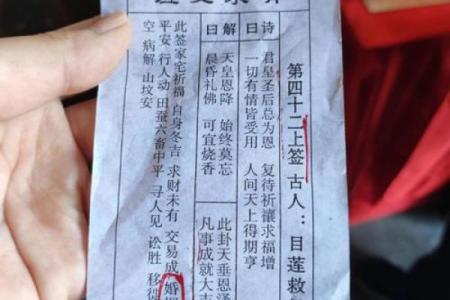 第四十二上签 古人：目莲救
诗曰
君皇圣后总为恩 复待祈禳求福增
一切有情皆受用 人间天上得期亨
解曰
天皇恩降 始终莫忘
晨昏礼佛 可宜烧香
此卦天垂恩泽
凡事成就大
此签家宅祈福 自身冬吉 求财未有 交易成 婚
平安 行人动 田蚕六畜中平 寻人见 讼胜 移徙
空 病解 山坟安